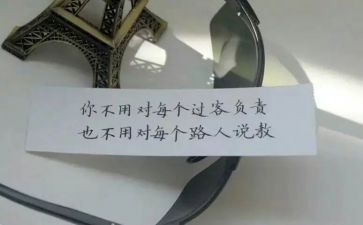 你不用对每个过客负责
也不用对每个路人说教